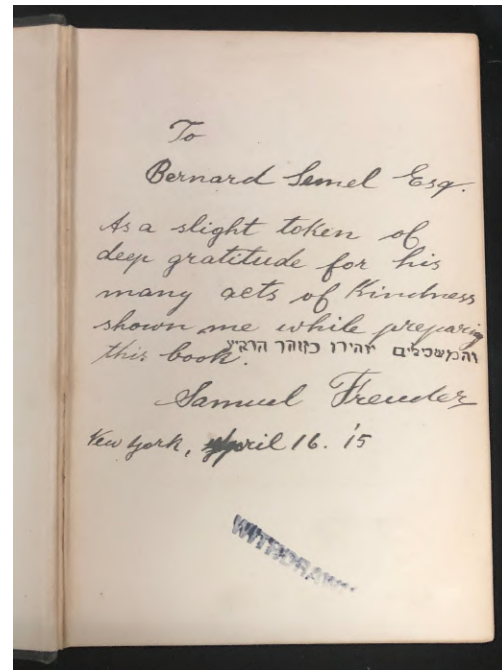 To
Bernard Semel Esq.
As a slight token of
deep gratitude for his
many acts of Kindness
shown me while preparing
this book. והמשכילים יזהירו כזוהר הרקיע
Samuel Freuder
New York, April 16. '15
WITHDRAWN